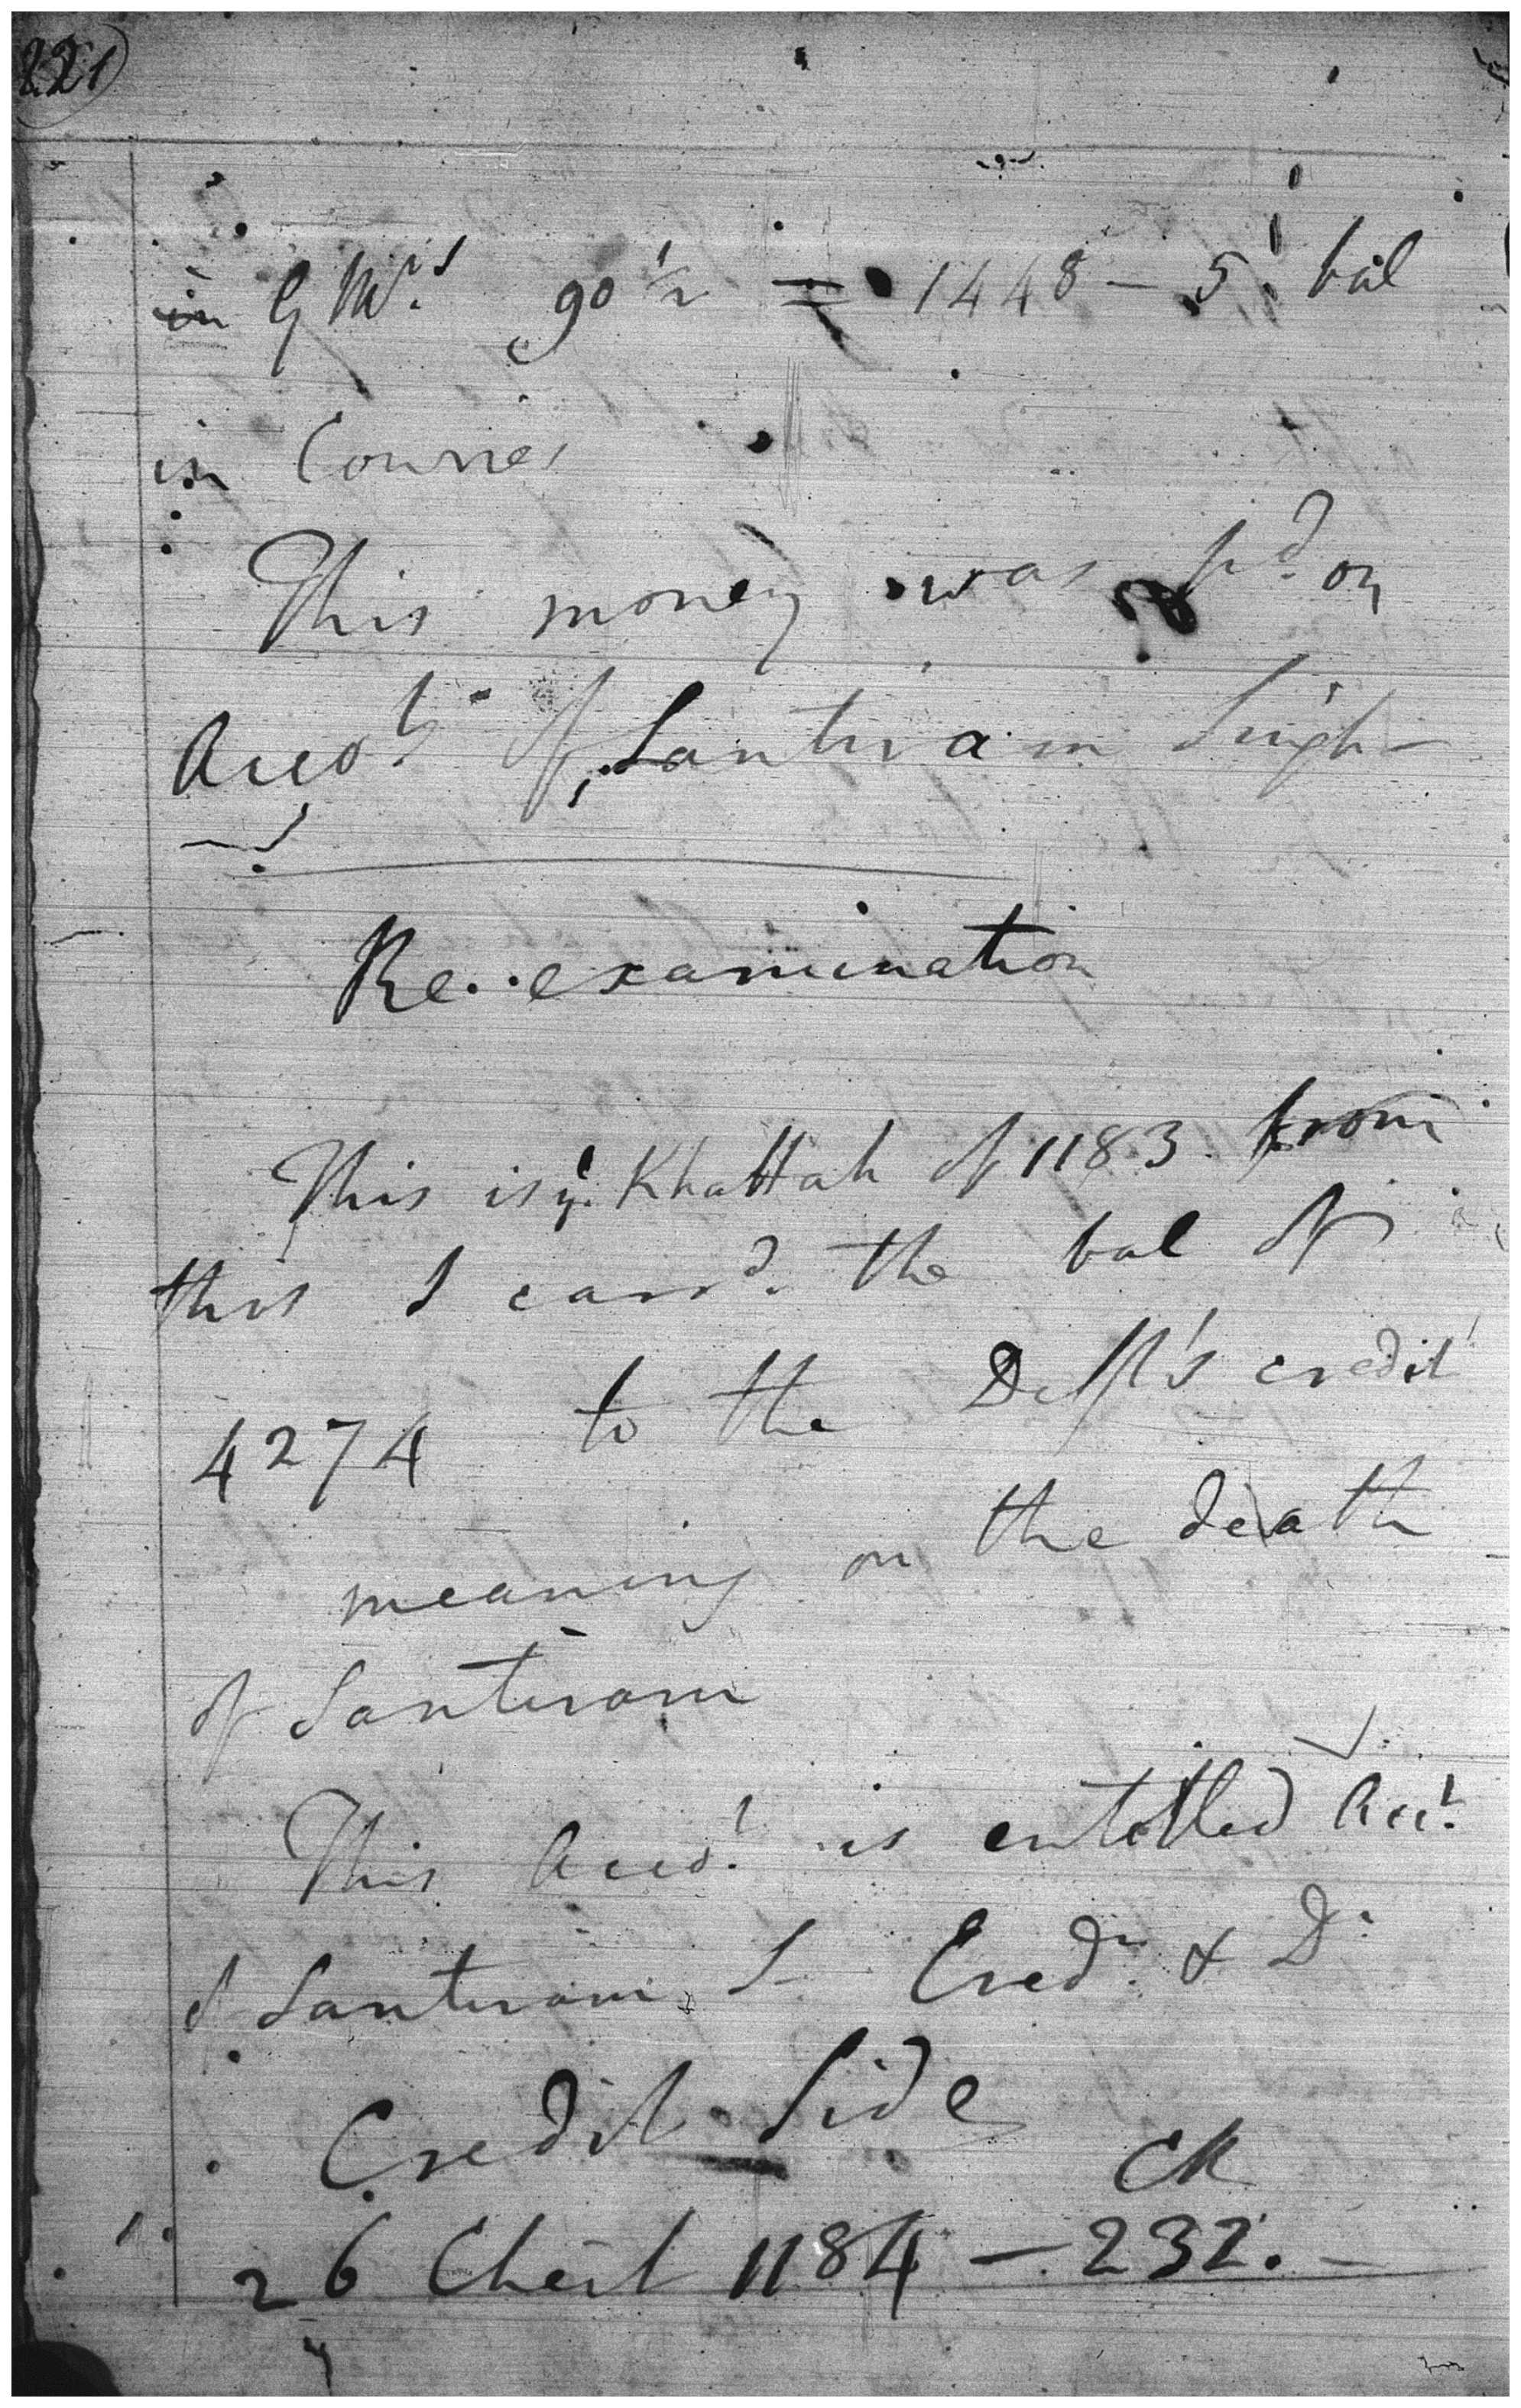 221)
in G Mrs 90 1/2 = 1448 - 5 bal
in Cowries
This money was pd. on
Accot. of Santiram Singh -
Re..examination
This is ye. Khattah of 1183 from
this I carrd. the bal of
4274 to the Defts credit
meaning on the death
of Santiram
This Accot. is entitled Acct.
of Santiram S. Credr. & Dr.
Credit Side
26 Cheit 1184 - 232. -